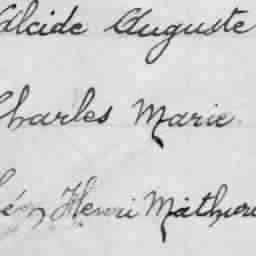 Alcide Auguste
Charles Marie
Léon Henri Mathuri